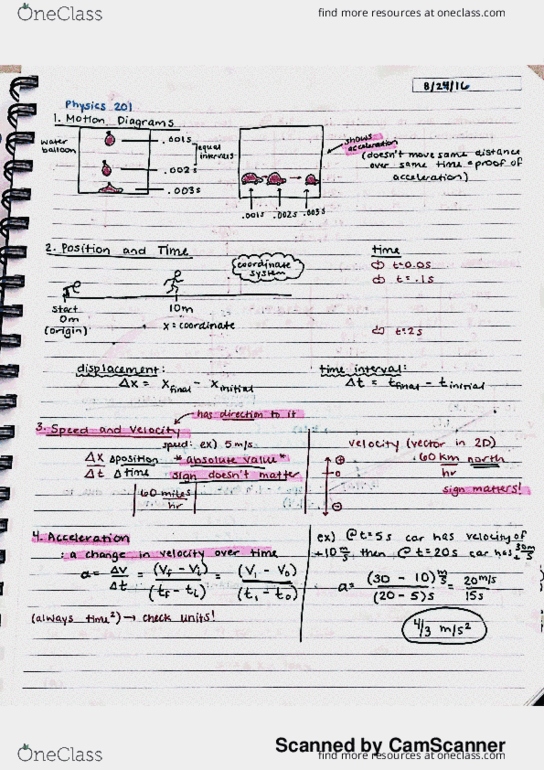 OneClass
find more resources at oneclass.com
8/24/16
Physics 201
1. Motion Diagrams
water balloon
.001s
.002s
.003s
equal intervals
.001s .002s .003s
shows acceleration
(doesn't move same distance
over same time = proof of
acceleration)
2. Position and Time
coordinate system
start
0m
(origin)
10m
x = coordinate
time
t=0.0s
t=.1s
t=2s
displacement:
Δx = x final - x initial
time interval:
Δt = t final - t initial
has direction to it
3. Speed and Velocity
speed: ex) 5 m/s
Δx Δposition *absolute value*
Δt Δtime sign doesn't matter
|60 miles|
hr
velocity (vector in 2D)
60 km north
hr
sign matters!
+
0
-
4. Acceleration
: a change in velocity over time
a = Δv/Δt = (Vf - Vi)/(tf - ti) = (V1 - V0)/(t1 - t0)
(always time²) → check units!
ex) @t=5s car has velocity of
+10 m/s then @t=20s car has + 30m/s
a = (30 - 10) m/s / (20 - 5)s = 20m/s / 15s
4/3 m/s²
Scanned by CamScanner
OneClass
find more resources at oneclass.com